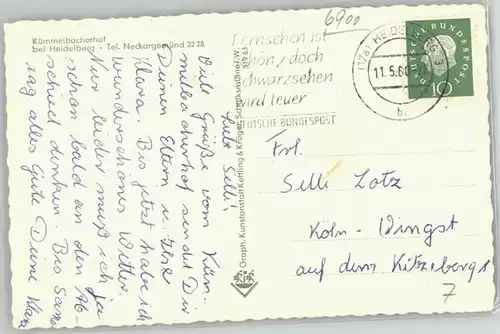 Kümmelbacherhof
bei Heidelberg - Tel. Neckargemünd 22 28
Liebe Silli!
Viele Grüße vom Küm-
melbacherhof sendet Dir
Deinen Eltern u. Uhr
Klara. Bis jetzt habe ich
wunderschönes Wetter.
Nur leider muß ich ja
schon bald an den Ab-
schied denken. Bis Sams-
tag alles Gute Deine Klara
Graph. Kunstanstalt Kettling & Krüger, Schalksmühle i. W.
519 63
6900
Fernsehen ist
schön, doch
schwarzsehen
wird teuer
DEUTSCHE BUNDESPOST
(17a) HEIDELBERG 3
11.5.60
b
DEUTSCHE BUNDESPOST
10
Frl.
Silli Lotz
Köln-Vingst
auf dem Kitzeberg 1
7